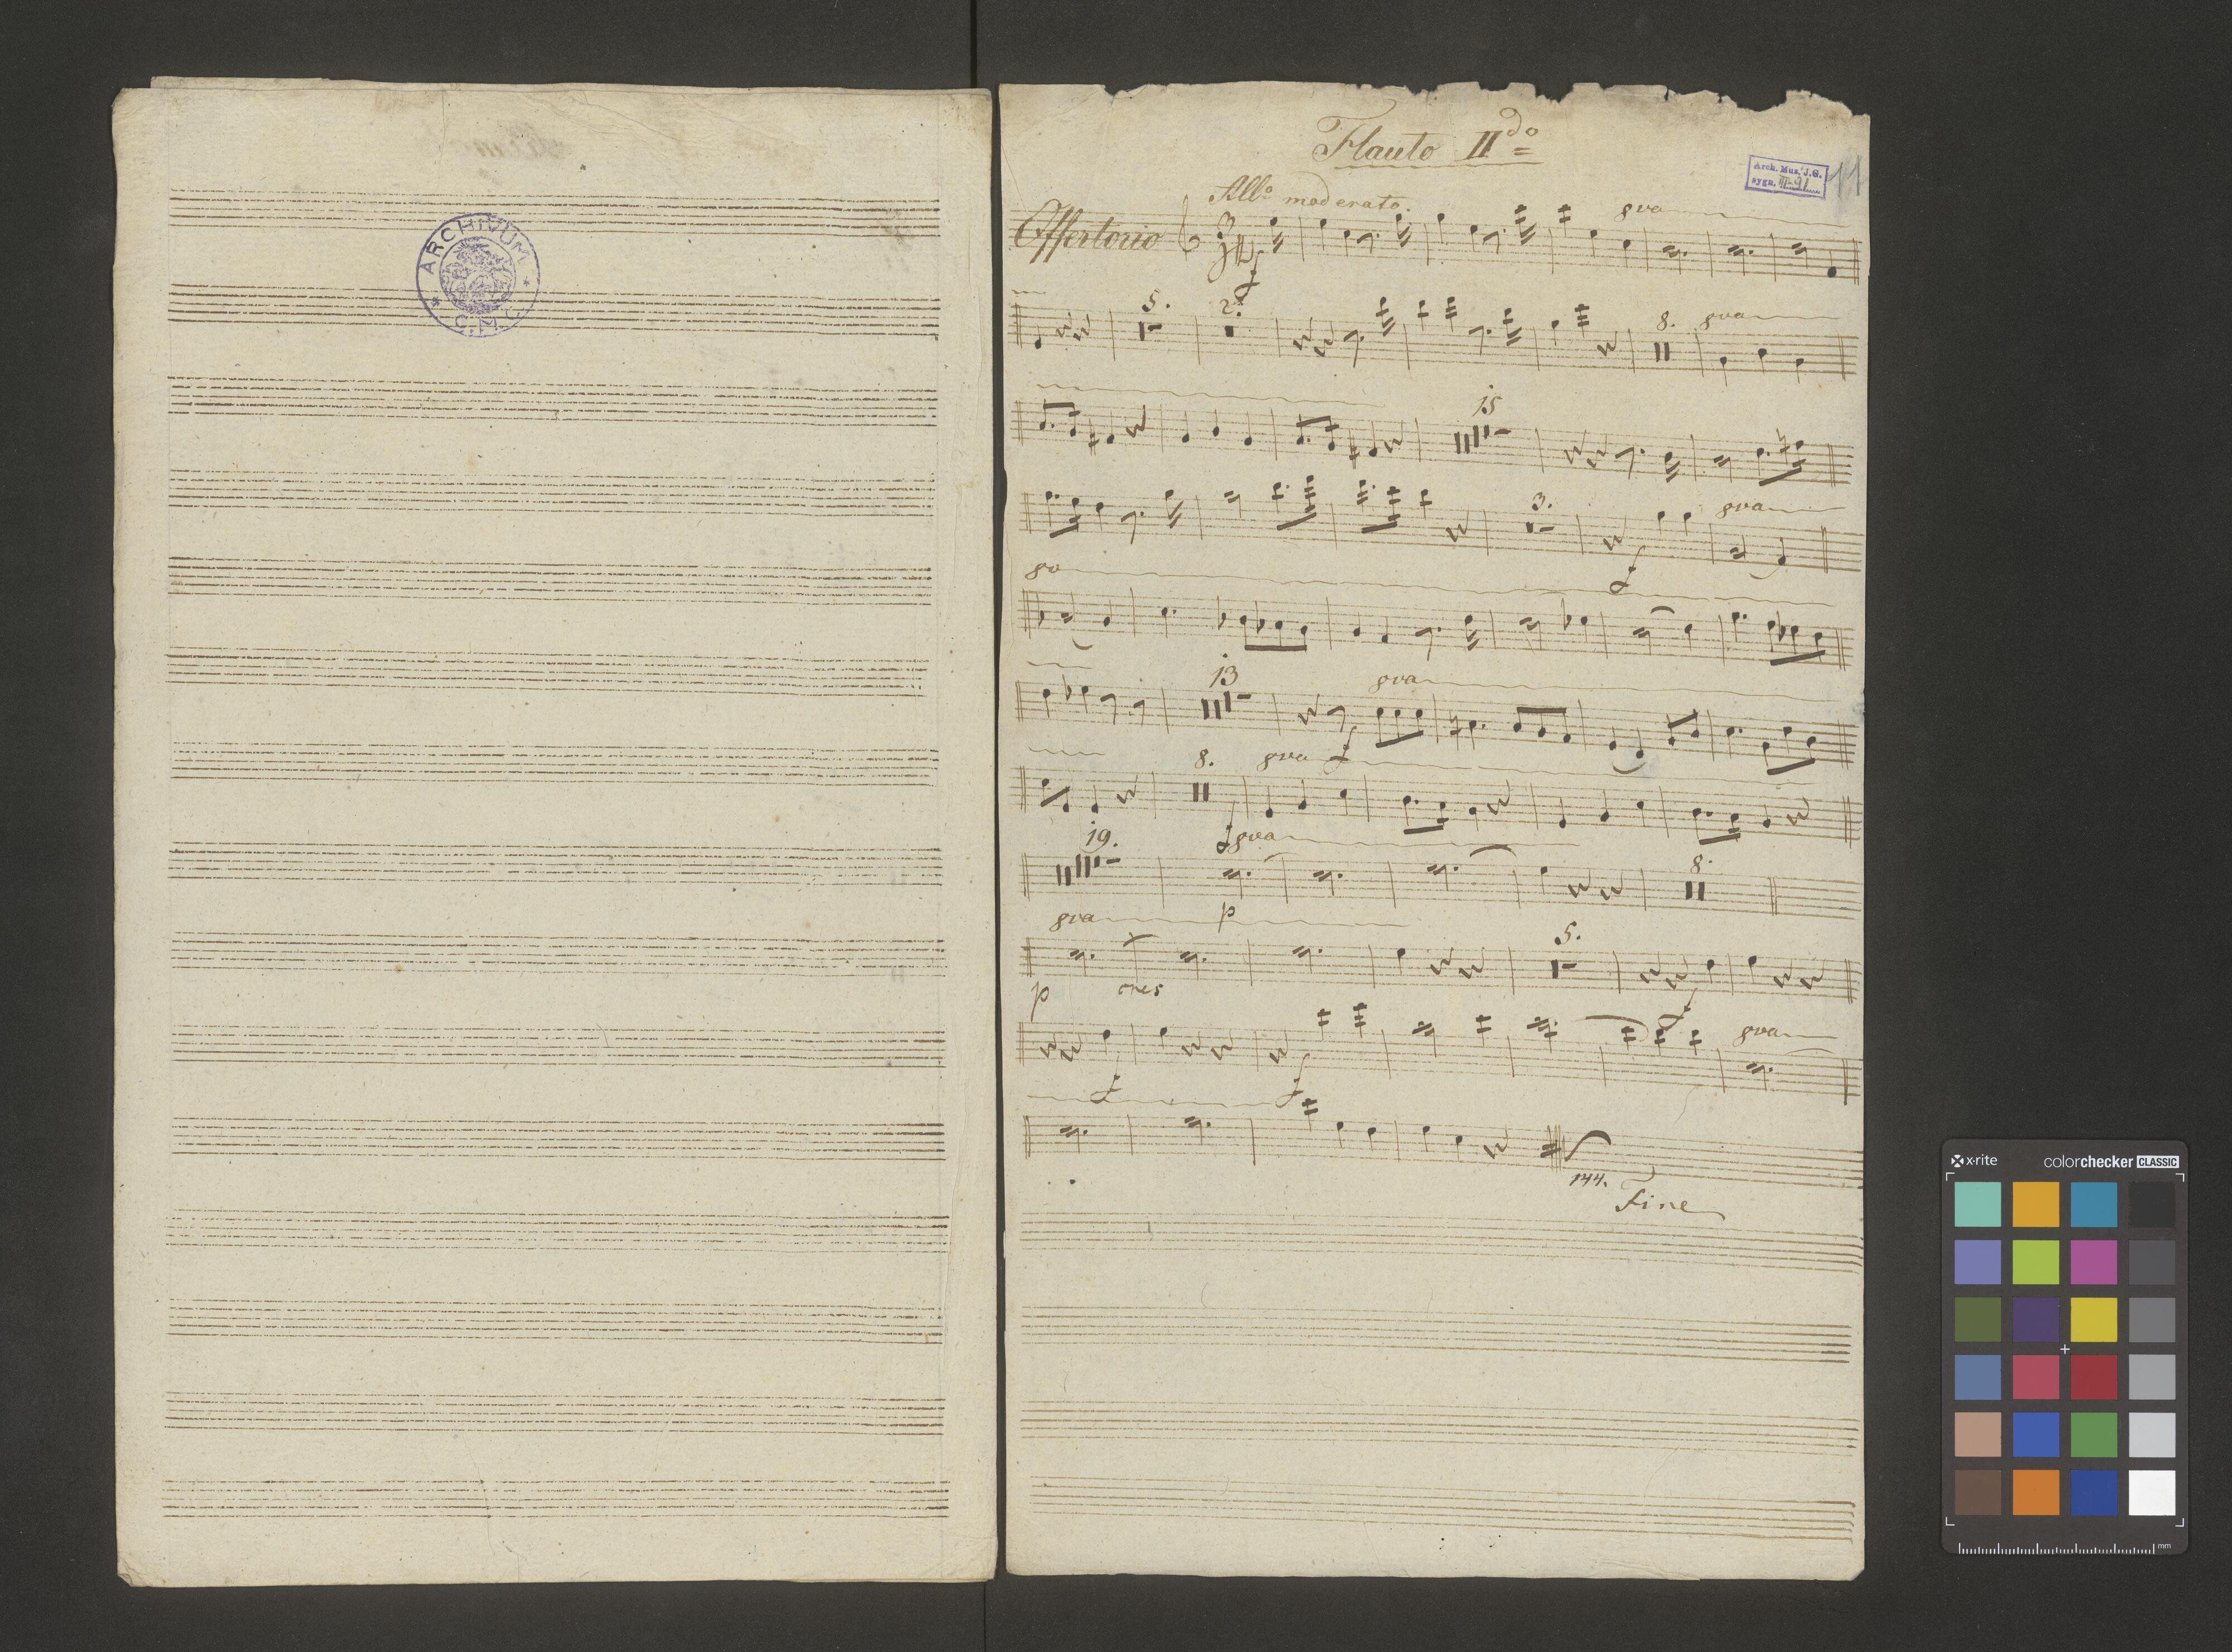 ARCHIVUM
* C.M.C. *
Flauto IIdo
Arch. Mus. J.G.
sygn.
11
Allo moderato.
Offertorio
3
f
8va
5.
2.
8.
8va
15
3.
8va
f
8v
13
8va
f
8.
8va
f
19.
8va
p
8.
8va
p
cres
5.
f
8va
f
f
144.
Fine
x-rite
colorchecker CLASSIC
mm